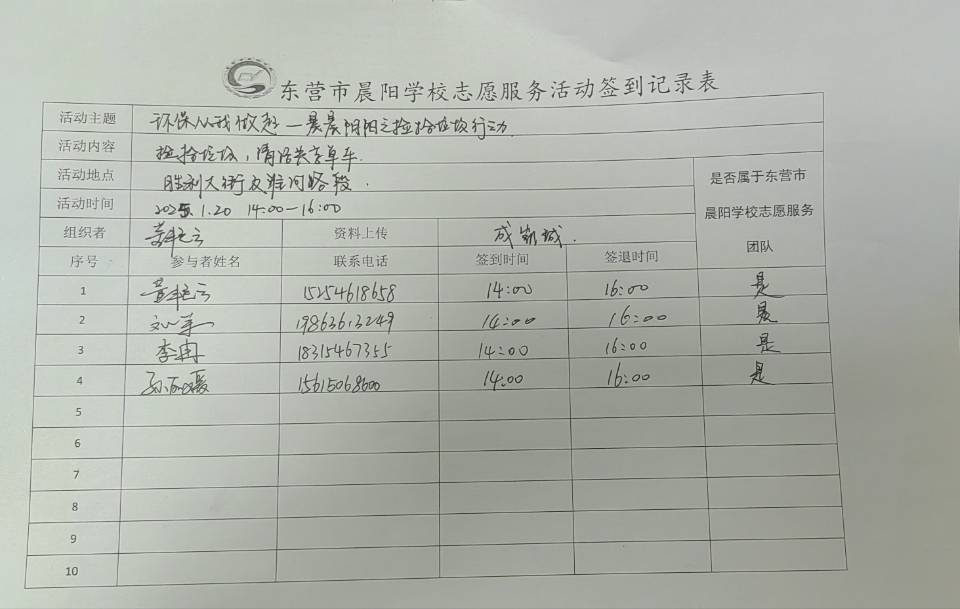 东营市晨阳学校志愿服务活动签到记录表
活动主题 环保从我做起—晨晨阳阳之捡拾垃圾行动
活动内容 捡拾垃圾，清洁共享单车.
活动地点 胜利大街及淮河路段.
活动时间 2025.1.20 14:00—16:00
是否属于东营市
晨阳学校志愿服务
团队
组织者 资料上传
序号 参与者姓名 联系电话 签到时间 签退时间
1 15254618658 14:00 16:00 是
2 19863613249 14:00 16:00 是
3 李冉 18315467355 14:00 16:00 是
4 15615068600 14:00 16:00 是
5
6
7
8
9
10